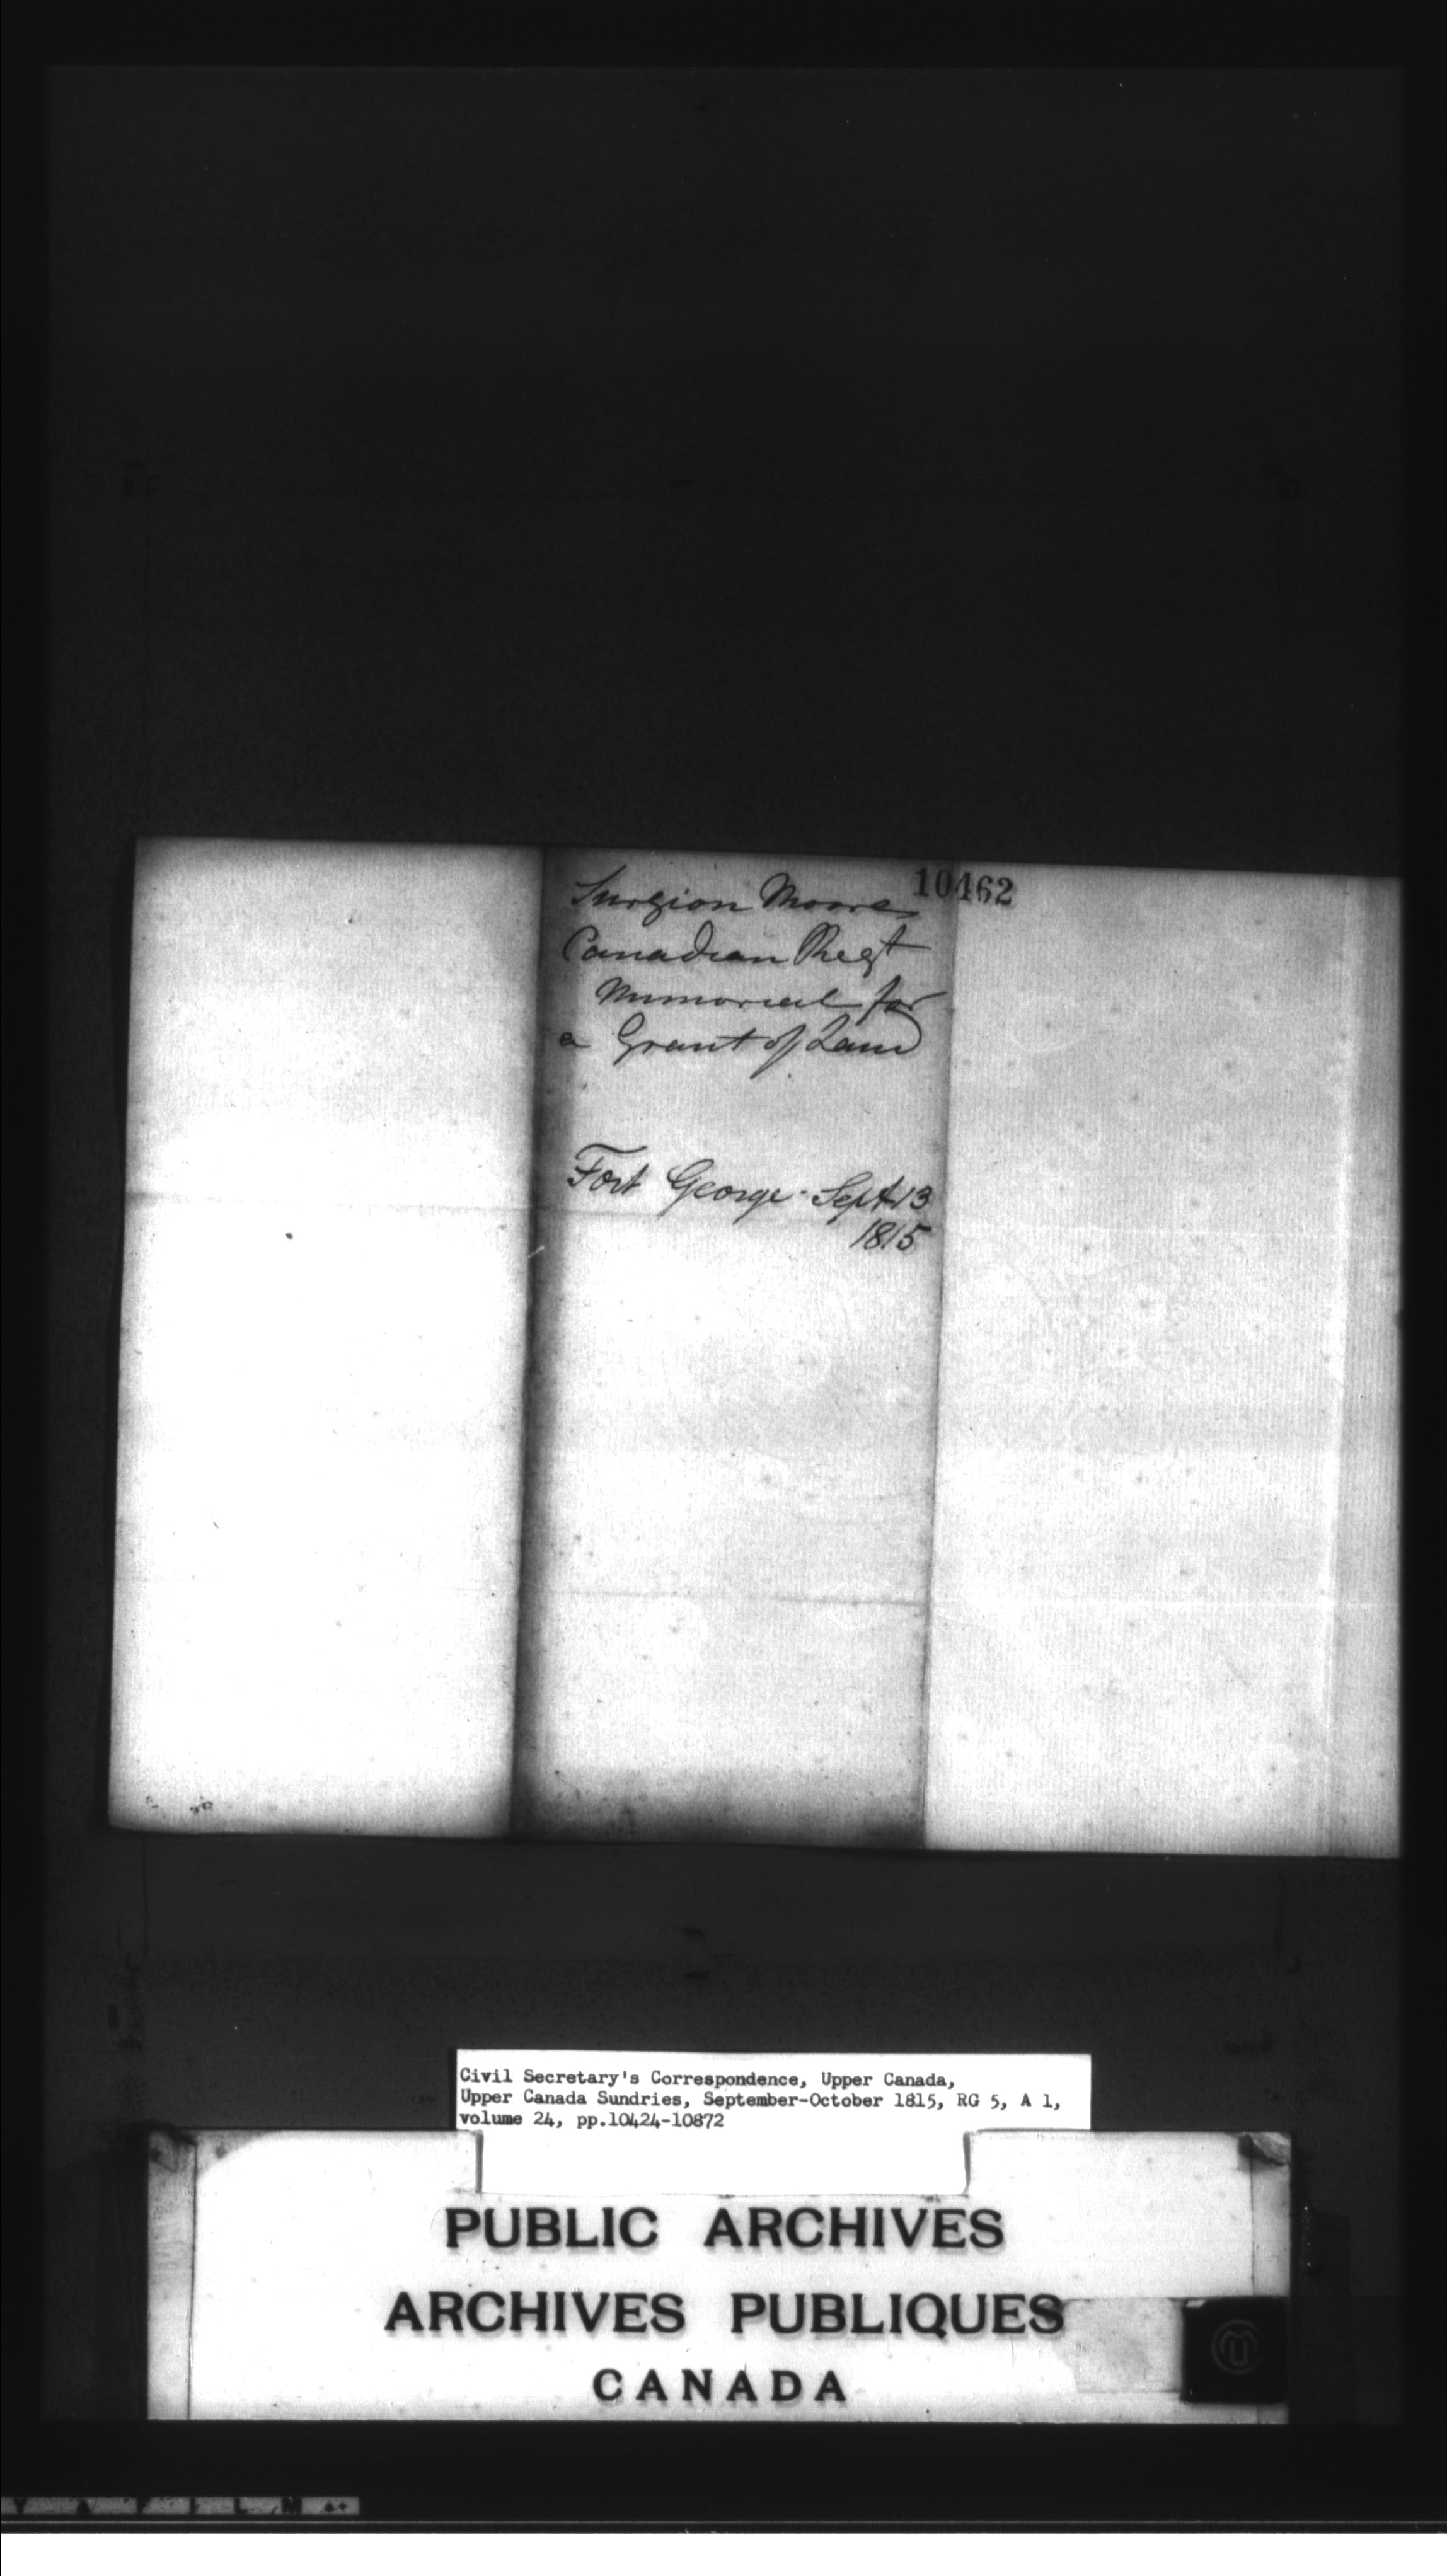 10462
Surgion Moore
Canadian Regt
Memorial for
a Grant of Land
Fort George - Sept 13
1815
Civil Secretary's Correspondence, Upper Canada,
Upper Canada Sundries, September-October 1815, RG 5, A 1,
volume 24, pp.10424-10872
PUBLIC ARCHIVES
ARCHIVES PUBLIQUES
CANADA